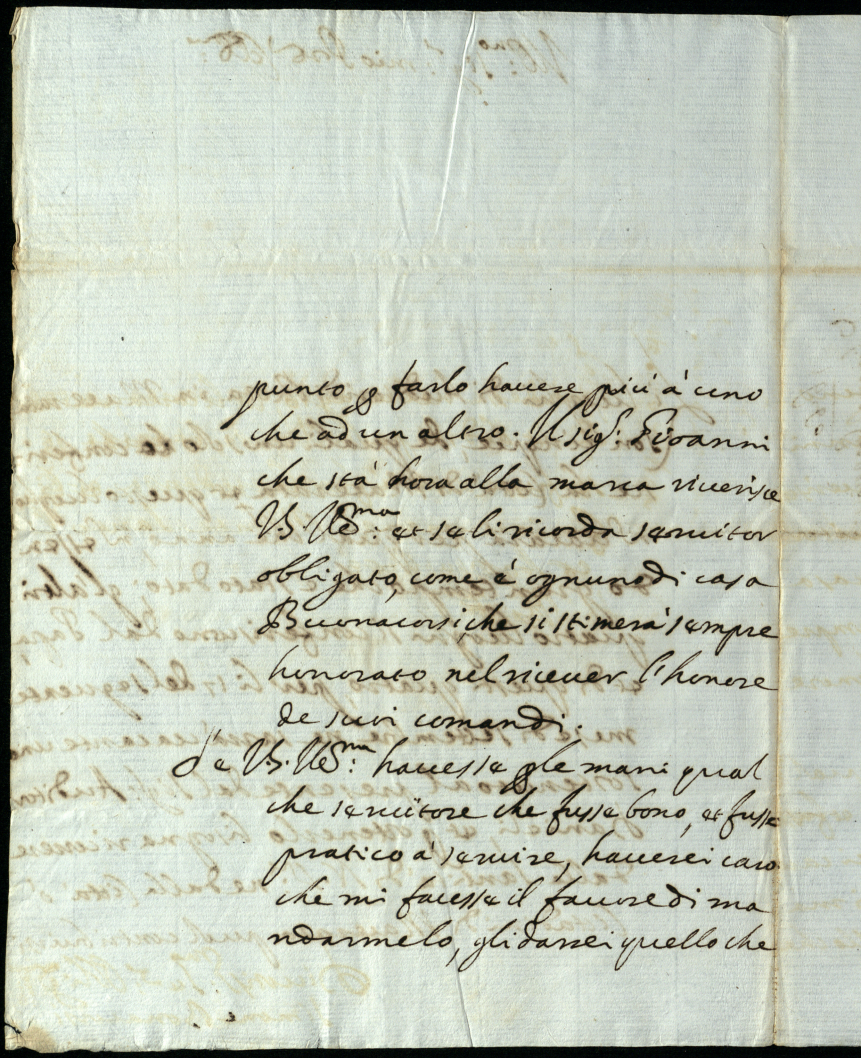 punto p farlo havere più à uno
che ad un altro. Il sig.r Giovanni
che stà hora alla marca riverisce
V.S. Ill.ma: et se li ricorda servitor
obligato, come è ognuno di casa
Buonacorsi, che si stimerà sempre
honorato nel ricever l'honore
de suoi comandi.
Se V.S. Ill.ma: havesse p le mani qual
che servitore che fusse bono, et fusse
pratico à servire, haverei caro
che mi facesse il favore di ma
ndarmelo, gli darei quello che